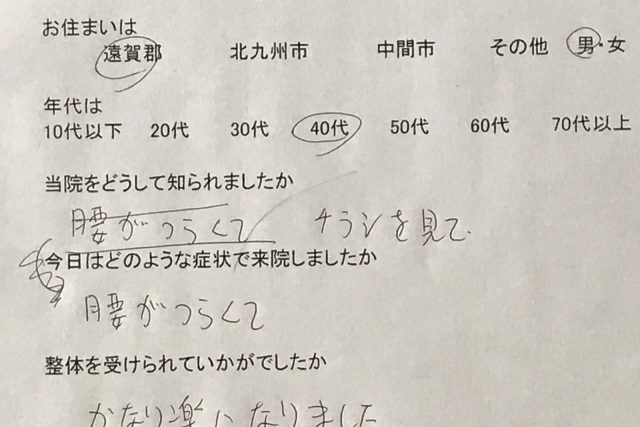 お住まいは
遠賀郡 北九州市 中間市 その他 男・女
年代は
10代以下 20代 30代 40代 50代 60代 70代以上
当院をどうして知られましたか
腰がつらくて チラシを見て
今日はどのような症状で来院しましたか
腰がつらくて
整体を受けられていかがでしたか
かなり楽になりました